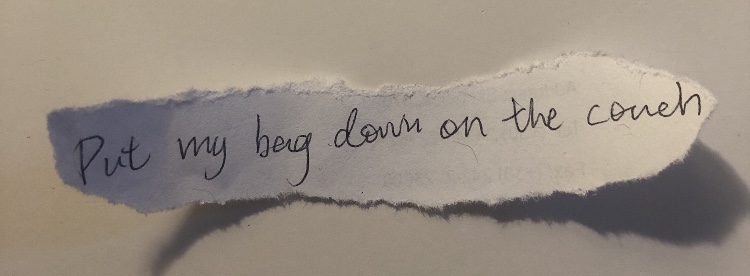 Put my bag down on the couch